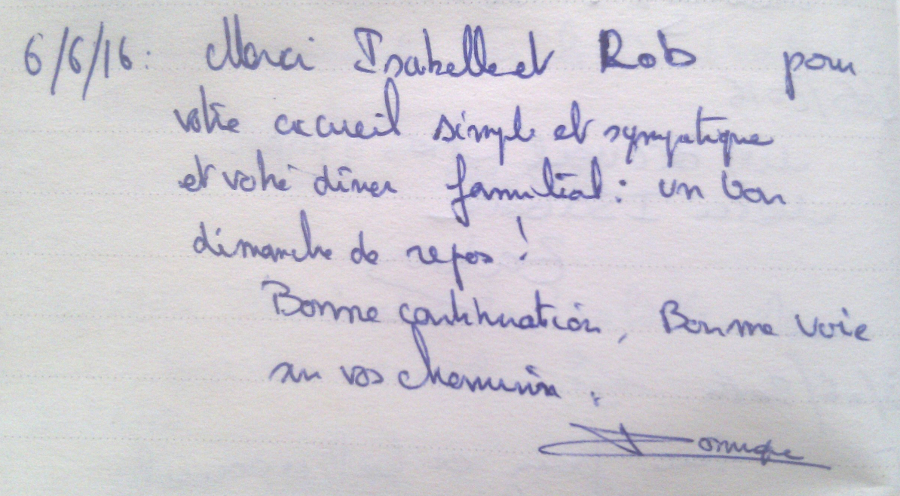 6/6/16: Merci Isabelle et Rob pour
votre accueil simple et sympatique
et votre dîner familial : un bon
dimanche de repos !
Bonne continuation, Bonne voie
sur vos chemins.